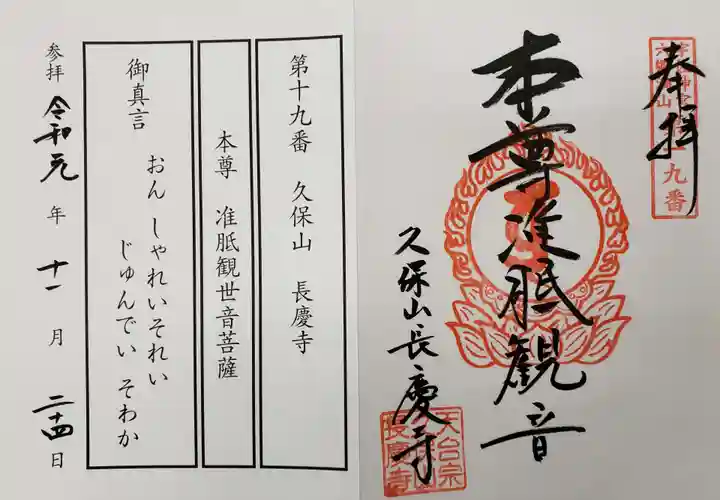 奉拝
九番
本尊准胝観音
久保山長慶寺
天台宗
長慶寺
第十九番 久保山 長慶寺
本尊 准胝観世音菩薩
御真言 おん しゃれいそれい
じゅんでい そわか
参拝 令和元年 十一月 二十四日